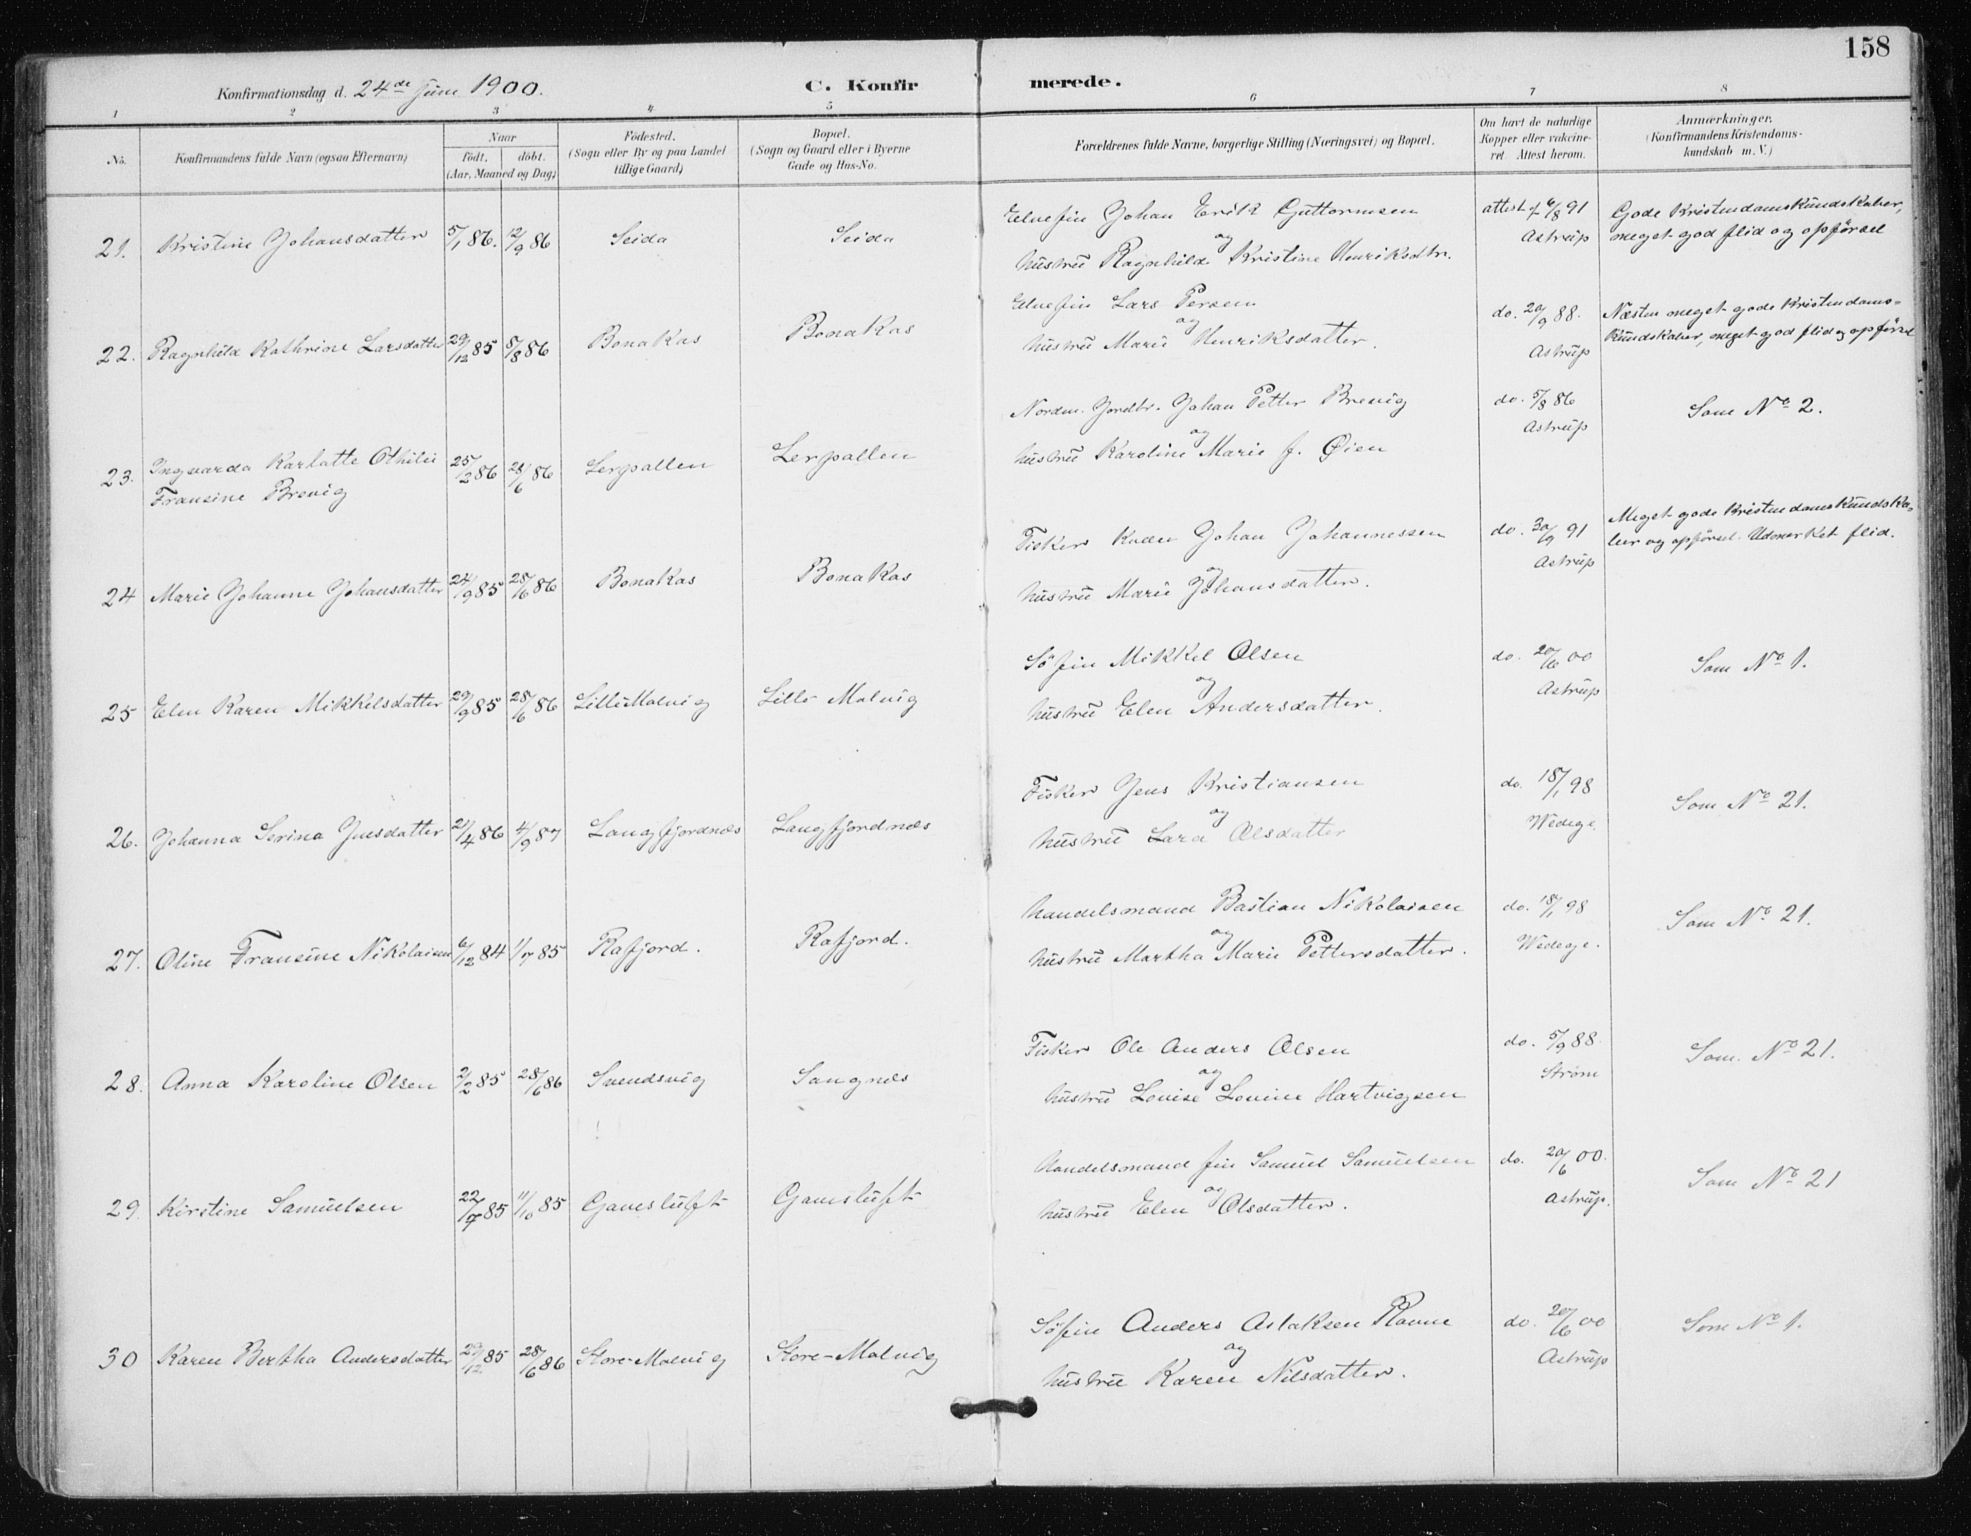 158
Konfirmationsdag d. 24de Juni 1900.
C. Konfirmerede.
1 2 3 4 5 6 7 8
No. Konfirmandens fulde Navn (ogsaa Efternavn)
Naar
født. døbt.
(Aar, Maaned og Dag)
Fødested.
(Sogn eller By og paa Landet
tillige Gaard)
Bopæl.
(Sogn og Gaard eller i Byerne
Gade og Hus-No.
Forældrenes fulde Navne, borgerlige Stilling (Næringsvei) og Bopæl.
Om havt de naturlige
Kopper eller vakcine-
ret. Attest herom.
Anmærkninger.
(Konfirmandens Kristendoms-
kundskab m. V.)
21. Kristine Johansdatter 5/1 86. 12/9 86 Seida Seida
Elvefin Johan Erik Guttormsen
og
hustru Ragnhild Kristine Henriksdtr.
attest af 6/8 91
Astrup
Gode Kristendomskundskaber,
meget god flid og opførsel
22. Ragnhild Kathrine Larsdatter 29/12 85 8/8 86 Bonakas Bonakas
Elvefin Lars Persen
og
hustru Marie Henriksdatter.
do. 20/9 88.
Astrup
Næsten meget gode Kristendoms-
kundskaber, meget god flid og opførsel
23. Ingvarda Karlatte Othilie
Fransine Brevig
25/2 86 28/6 86 Lerpollen Lerpollen
Nordm. Jordbr. Johan Petter Brevig
og
hustru Karoline Marie f. Øien
do. 5/8 86
Astrup
Som No 2.
24 Marie Johanne Johansdatter 24/9 85 28/6 86 Bonakas Bonakas
Fisker Kvæn Johan Johannessen
og
hustru Marie Johansdatter.
do. 30/9 91
Astrup
Meget gode Kristendomskundska-
ber og opførsel. Udmerket flid.
25 Elen Karen Mikkelsdatter 29/9 85 28/6 86 Lille Molvig Lille Molvig
Søfin Mikkel Olsen
og
hustru Elen Andersdatter.
do. 20/6 00
Astrup
Som No 1.
26. Johanna Serina Jensdatter 21/4 86 4/9 87 Langfjordnæs Langfjordnæs
Fisker Jens Kristiansen
og
hustru Lara Olsdatter
do. 18/1 98
Wedege.
Som No 21.
27. Oline Fransine Nikolaisen 6/12 84 1/7 85 Rafjord. Rafjord.
Handelsmand Bastian Nikolaisen
og
hustru Martha Marie Pettersdatter.
do. 18/1 98
Wedege.
Som No 21.
28. Anna Karoline Olsen 2/2 85 28/6 86 Svendsvig Sangnæs
Fisker Ole Anders Olsen
og
hustru Lovise Lovine Hartvigsen
do. 5/9 88.
Strøm
Som No 21.
29. Kirstine Samuelsen 22/7 85 11/10 85 Gamsluft Gamsluft
Handelsmand fin Samuel Samuelsen
og
hustru Elen Olsdatter.
do. 20/6 00.
Astrup.
Som No 21
30 Karen Bertha Andersdatter 29/12 85 28/6 86 Store-Molvig Store-Molvig
Søfin Anders Aslaksen Ravne
og
hustru Karen Nilsdatter.
do. 20/6 00
Astrup
Som No 1.